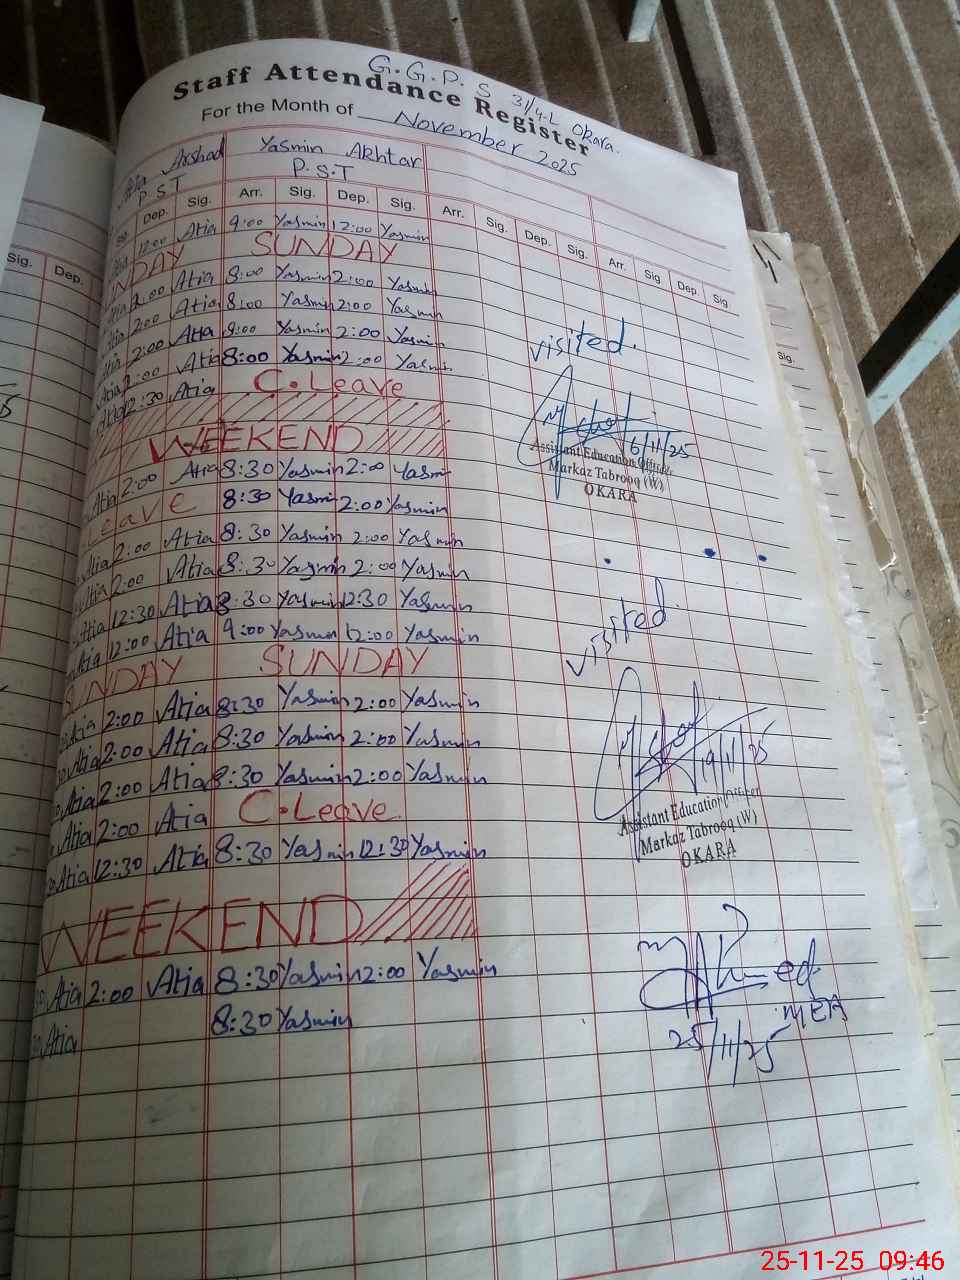 G.G.P.S 31/4-L Okara.
Staff Attendance Register
For the Month of November 2025
Arshad Yasmin Akhtar
P.S.T P.S.T
Sig. Dep. Dep. Sig. Arr. Sig. Dep. Sig. Arr. Sig. Dep. Sig. Arr. Sig Dep. Sig
12:00 Atia 9:00 Yasmin 12:00 Yasmin
SUNDAY
2:00 Atia 8:00 Yasmin 2:00 Yasmin
2:00 Atia 8:00 Yasmin 2:00 Yasmin
2:00 Atia 8:00 Yasmin 2:00 Yasmin
Atia 2:00 Atia 8:00 Yasmin 2:00 Yasmin
Atia 12:30 Atia C.Leave
WEEKEND
Atia 2:00 Atia 8:30 Yasmin 2:00 Yasmin
Leave 8:30 Yasmin 2:00 Yasmin
Atia 2:00 Atia 8:30 Yasmin 2:00 Yasmin
Atia 2:00 Atia 8:30 Yasmin 2:00 Yasmin
Atia 12:30 Atia 8:30 Yasmin 12:30 Yasmin
Atia 12:00 Atia 9:00 Yasmin 12:00 Yasmin
SUNDAY SUNDAY
Atia 2:00 Atia 8:30 Yasmin 2:00 Yasmin
Atia 2:00 Atia 8:30 Yasmin 2:00 Yasmin
Atia 2:00 Atia 8:30 Yasmin 2:00 Yasmin
Atia 2:00 Atia C.Leave
Atia 12:30 Atia 8:30 Yasmin 12:30 Yasmin
WEEKEND
Atia 2:00 Atia 8:30 Yasmin 2:00 Yasmin
Atia 8:30 Yasmin
visited.
6/11/25
Assistant Education Officer
Markaz Tabrooq (W)
OKARA
visited.
19/11/25
Assistant Education Officer
Markaz Tabrooq (W)
OKARA
MEA
25/11/25
Sig.
25-11-25 09:46